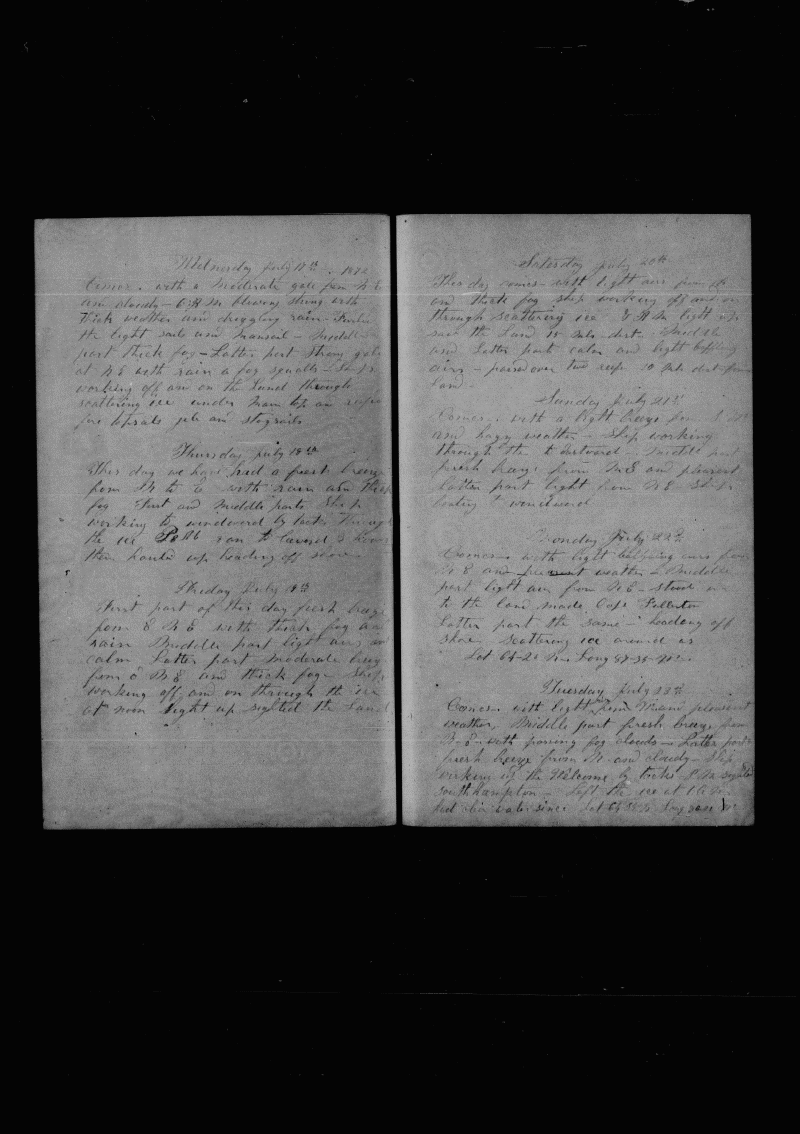 Wednesday July 17th 1872
Comes with a moderate gale from N E
and cloudy - 6 P M blowing strong with
thick weather and driggling rain -
the light sails and mainsail - Middle
part thick fog - Latter part strong gale
at N E with rain & fog squalls - Ship
working off and on the Land through
scattering ice under main top
fore topsails jib and staysails
Thursday July 18th
This day we have had a fresh breeze
from to E with rain and thick
fog First and Middle parts Ship
working to windward by tacks through
the ice ran to leeward 3 hours
then hauled up heading off shore
Friday July 19th
First part of this day fresh breeze
from E N E with thick fog and
rain Middle part light airs and
calm Latter part moderate breeze
from E N E and thick fog - Ship
working off and on through the ice
at noon light up sighted the Land
Saturday July 20th
This day comes with light airs from
and thick fog ship working off and on
through scattering ice P M light up
saw the Land 15 mls dist - Middle
and Latter part calm and light baffling
airs - passed over two 10 mls dist from
land
Sunday July 21st
Comes with a light breeze from
and hazy weather - Ship working
through the to Eastward - middle part
fresh breeze from N E and pleasant
latter part light from N E Ship
beating to windward
Monday July 22nd
Comes with light baffling airs from
N E and pleasant weather - Middle
part light air from N E - stood in
to the land made Cape Fullerton
Latter part the same - heading off
shore scattering ice around us
Lat Long
Tuesday July 23rd
Comes with light from and pleasant
weather, Middle part fresh breeze from
N E with passing fog clouds - Latter part
fresh breeze from N and cloudy - Ship
working up the Welcome by tacks sighted
Southhampton - left the ice at
had water since Lat Long